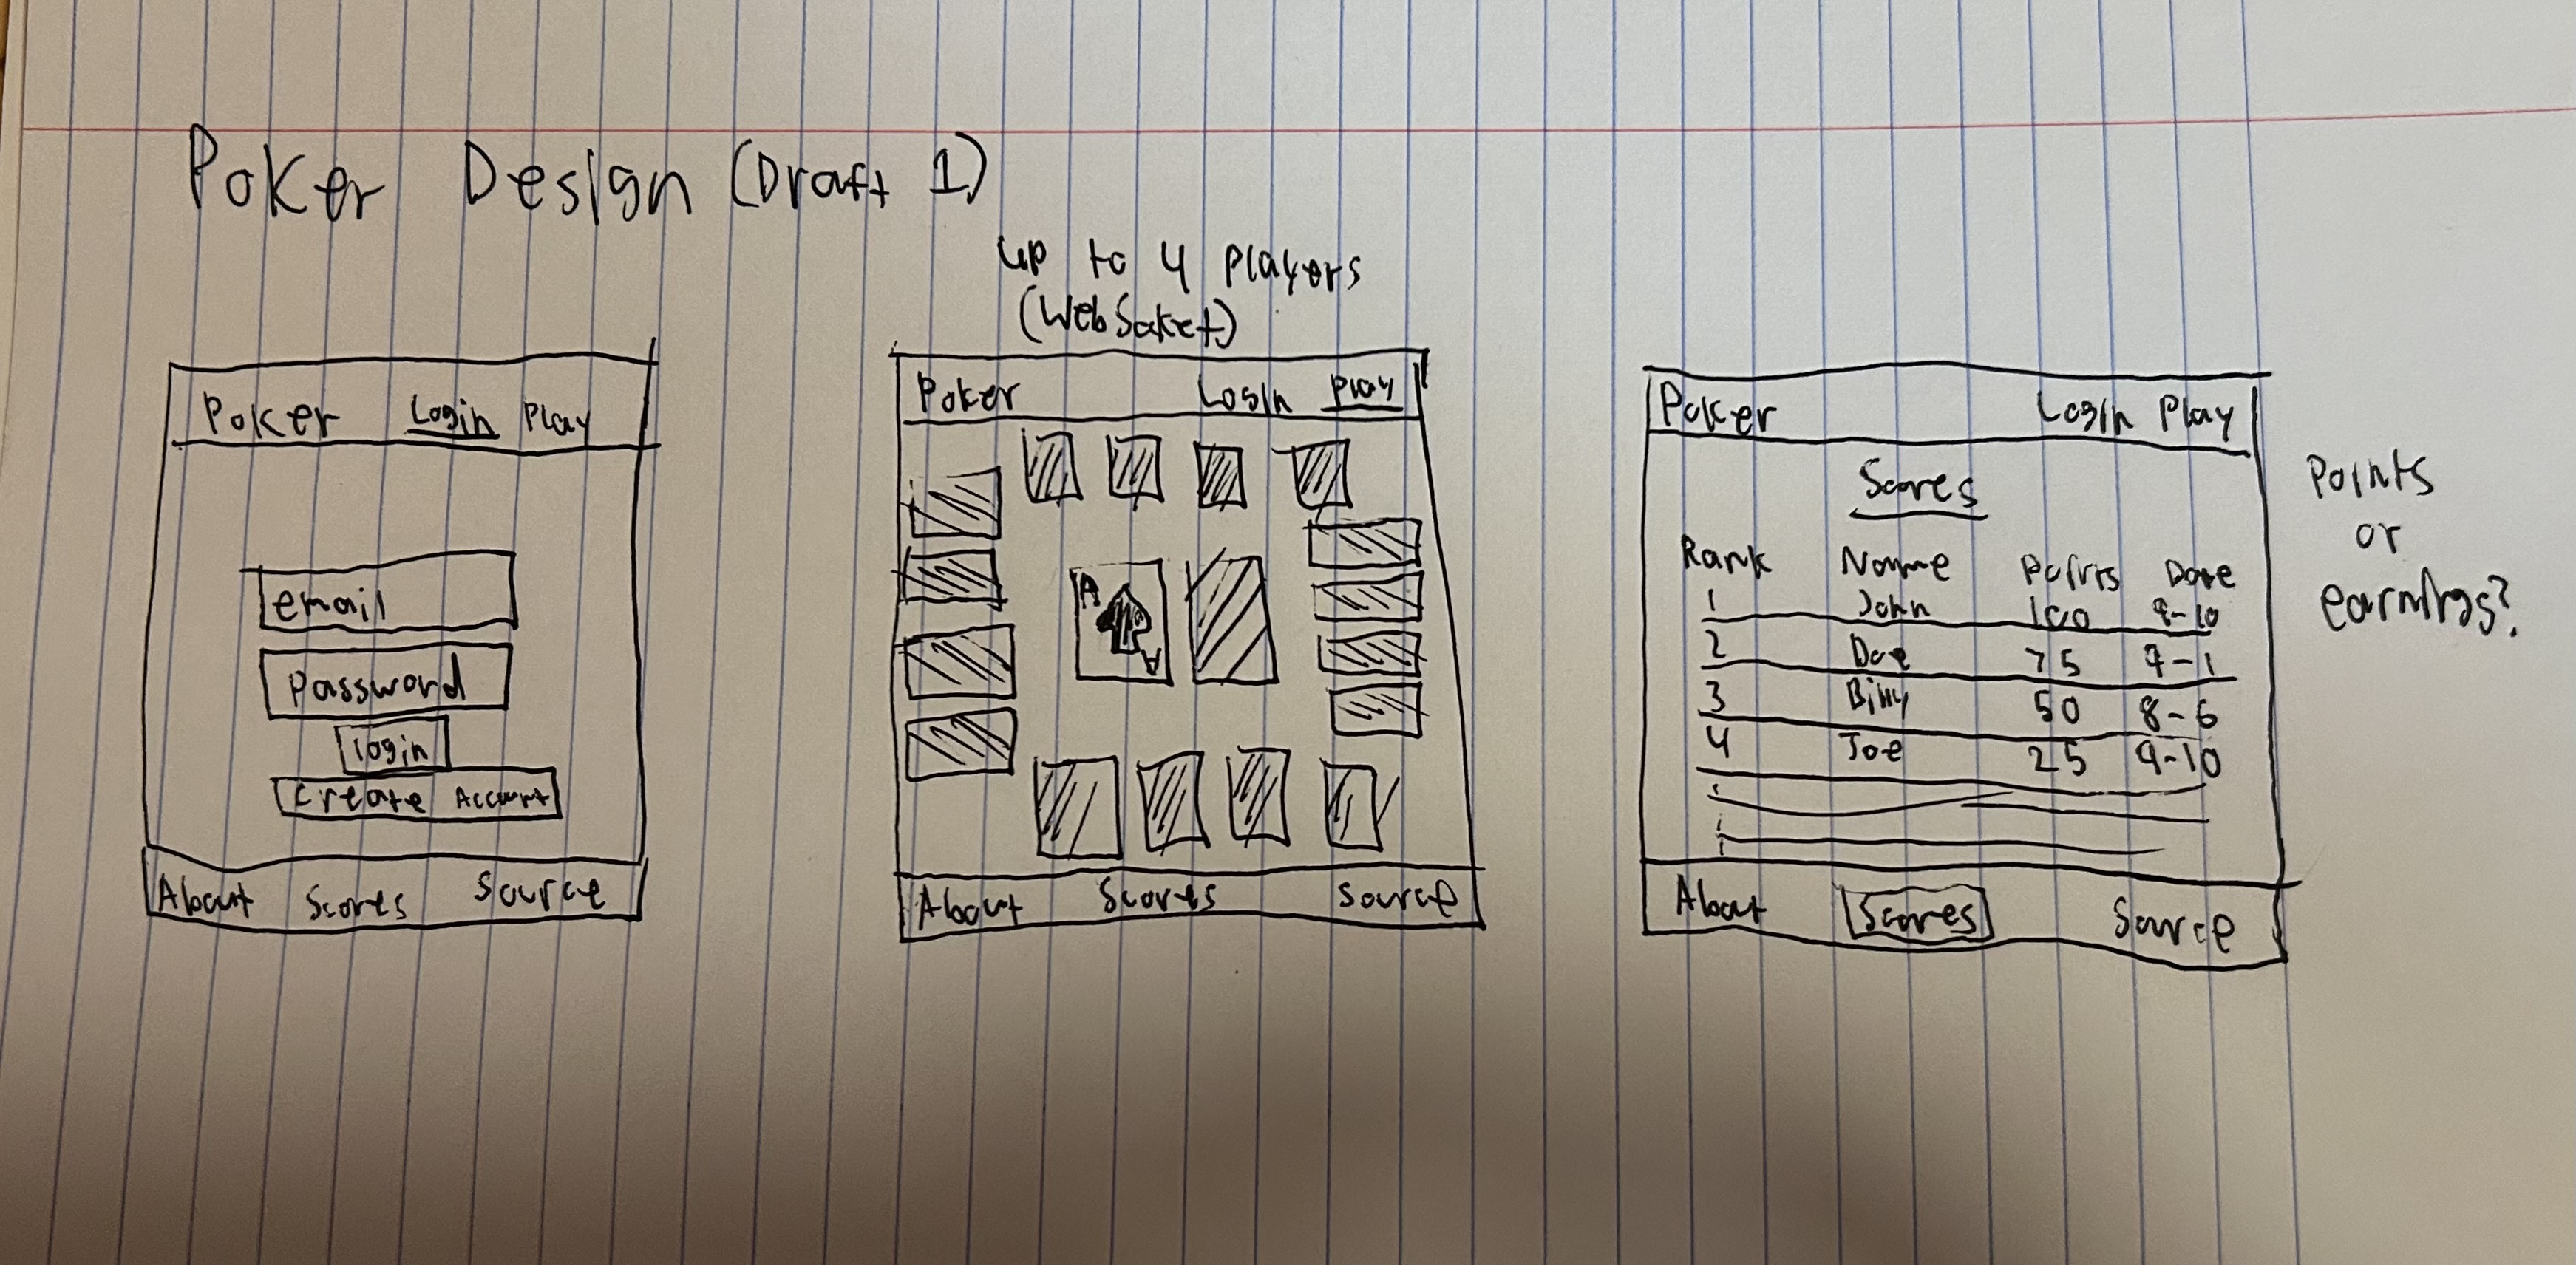 Poker Design (Draft 1)
up to 4 players
(WebSoket)
Poker Login Play
email
Password
login
Create Account
About Scores Source
Poker Login Play
A
A
About Scores Source
Poker Login Play
Scores
Rank Name Points Date
1 John 100 9-10
2 Doe 75 9-1
3 Billy 50 8-6
4 Joe 25 9-10
About Scores Source
Points
or
earnings?